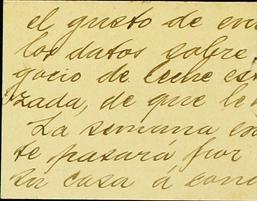 el gusto de en
los datos sobre
gocio de leche est
zada, de que le
La semana en
te pasará por
su casa á con